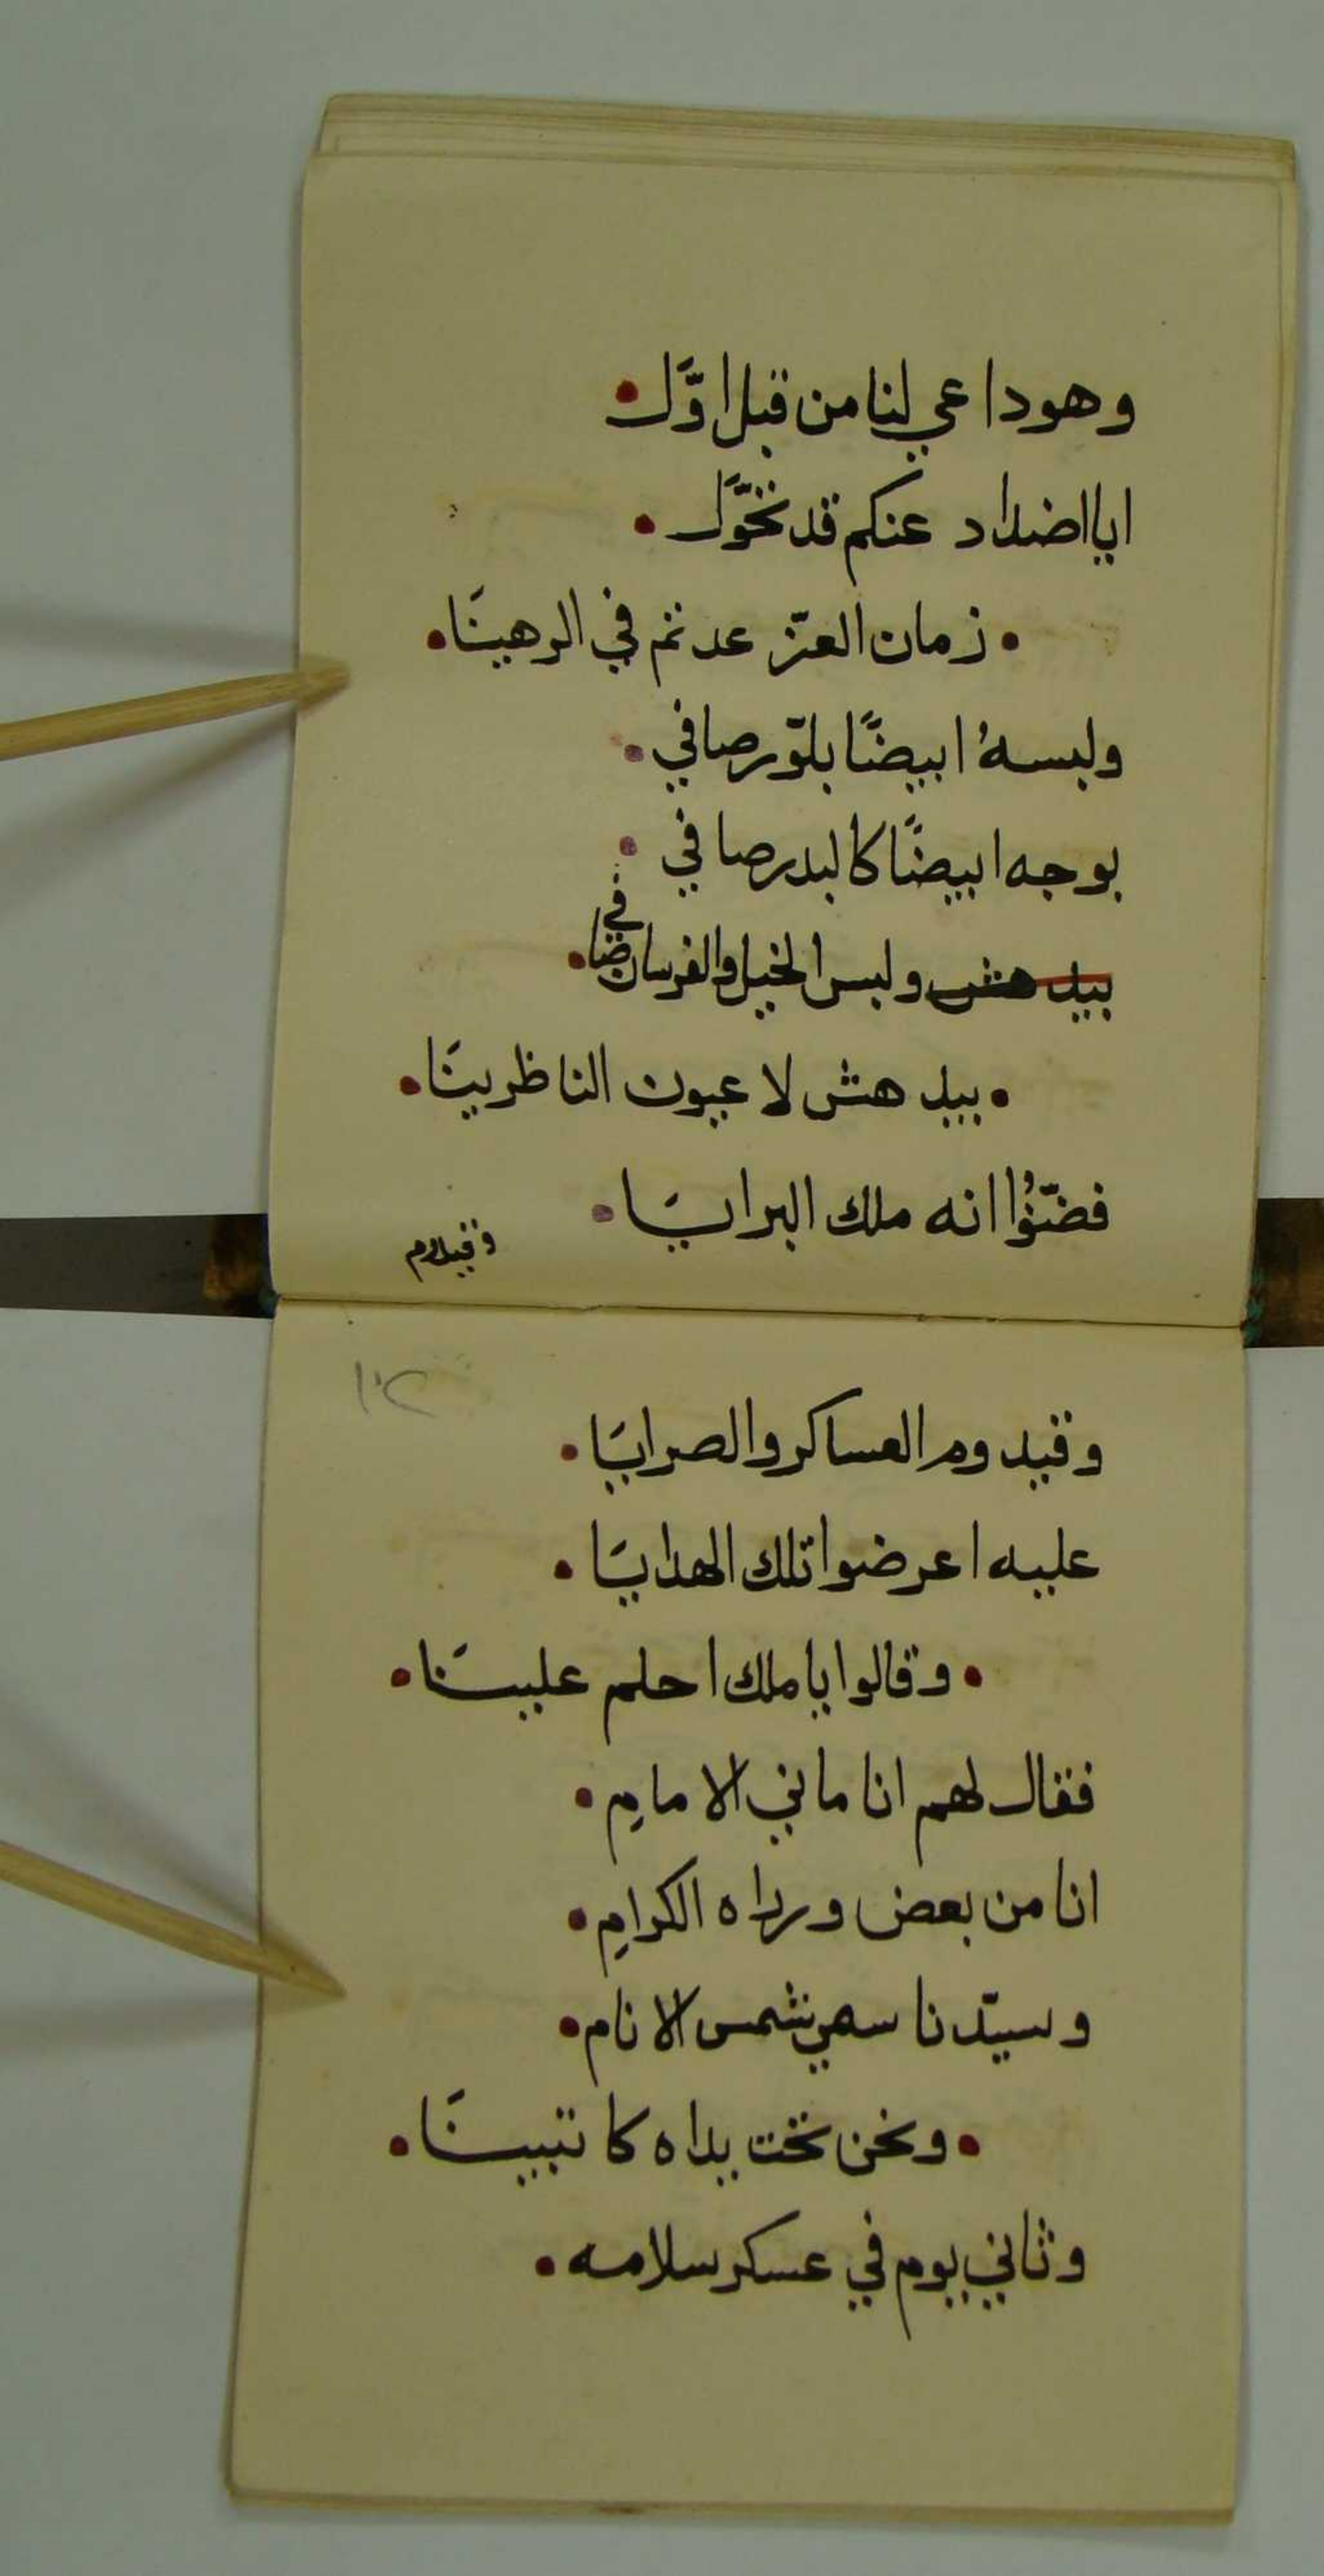 وهوداعي لنا من قبل اوَّل •
ايااضداد عنكم قد تحَوَّل •
• زمان العزّ عدتم في الرهينَا •
ولبسهُ ابيضًا بلّور صافي •
بوجه ابيضًا كالبدر صافي •
بيدهش ولبس الخيل والفرسان ضافي •
• بيدهش لاعيون الناظرينَا •
فضنّوُا انه ملك البرايَا •
وقيدوم
١٠٢
وقيدوم العساكر والصرايَا •
عليه اعرضوا تلك الهدايَا •
• وقالوا ياملك احلم علينَا •
فقال لهم انا ماني الامامِ •
انا من بعض ورداه الكرامِ •
وسيّدنا سمي شمس الانام •
• ونحن تحت يداه كاتبينَا •
وثاني يوم في عسكر سلامه •